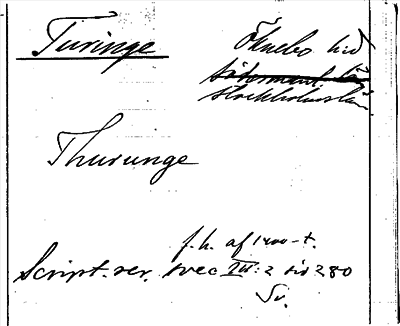 Turinge
Öknebo hd
Södermanl. län
Stockholms län.
Thurunge
f.h. af 1400-t.
Script. rer. svec III:2 sid 280
Sv.